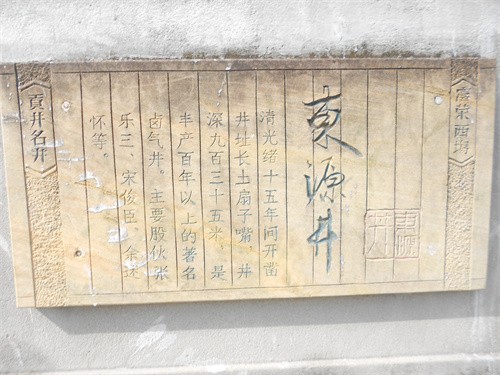 富荣西场
東源井
清光绪十五年间开凿
井址长土扇子嘴。井
深九百三十五米，是
丰产百年以上的著名
卤气井。主要股伙张
乐三、宋俊臣、余述
怀等。
貢井名井